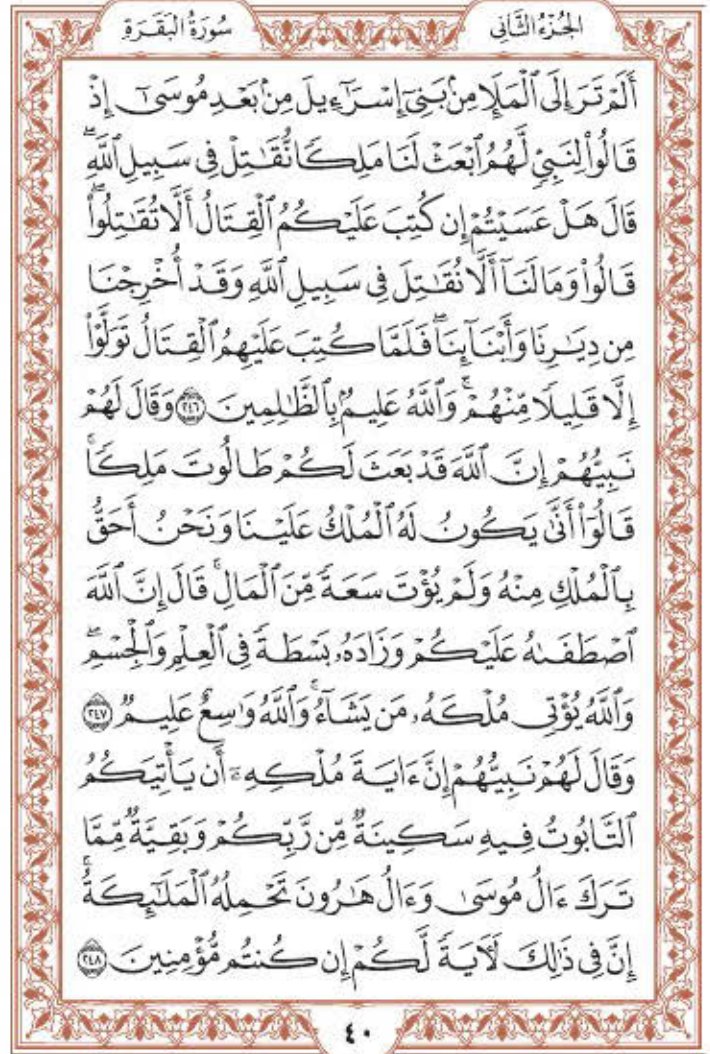 سُورَةُ الْبَقَرَةِ
الْجُزْءُ الثَّانِي
أَلَمْ تَرَ إِلَى ٱلْمَلَإِ مِنۢ بَنِىٓ إِسْرَٰٓءِيلَ مِنۢ بَعْدِ مُوسَىٰٓ إِذْ
قَالُوا۟ لِنَبِىٍّ لَّهُمُ ٱبْعَثْ لَنَا مَلِكًا نُّقَٰتِلْ فِى سَبِيلِ ٱللَّهِ ۖ
قَالَ هَلْ عَسَيْتُمْ إِن كُتِبَ عَلَيْكُمُ ٱلْقِتَالُ أَلَّا تُقَٰتِلُوا۟ ۖ
قَالُوا۟ وَمَا لَنَآ أَلَّا نُقَٰتِلَ فِى سَبِيلِ ٱللَّهِ وَقَدْ أُخْرِجْنَا
مِن دِيَٰرِنَا وَأَبْنَآئِنَا ۖ فَلَمَّا كُتِبَ عَلَيْهِمُ ٱلْقِتَالُ تَوَلَّوْا۟
إِلَّا قَلِيلًا مِّنْهُمْ ۗ وَٱللَّهُ عَلِيمٌۢ بِٱلظَّٰلِمِينَ ٢٤٦ وَقَالَ لَهُمْ
نَبِيُّهُمْ إِنَّ ٱللَّهَ قَدْ بَعَثَ لَكُمْ طَالُوتَ مَلِكًا ۚ
قَالُوٓا۟ أَنَّىٰ يَكُونُ لَهُ ٱلْمُلْكُ عَلَيْنَا وَنَحْنُ أَحَقُّ
بِٱلْمُلْكِ مِنْهُ وَلَمْ يُؤْتَ سَعَةً مِّنَ ٱلْمَالِ ۚ قَالَ إِنَّ ٱللَّهَ
ٱصْطَفَىٰهُ عَلَيْكُمْ وَزَادَهُۥ بَسْطَةً فِى ٱلْعِلْمِ وَٱلْجِسْمِ ۖ
وَٱللَّهُ يُؤْتِى مُلْكَهُۥ مَن يَشَآءُ ۚ وَٱللَّهُ وَٰسِعٌ عَلِيمٌ ٢٤٧
وَقَالَ لَهُمْ نَبِيُّهُمْ إِنَّ ءَايَةَ مُلْكِهِۦٓ أَن يَأْتِيَكُمُ
ٱلتَّابُوتُ فِيهِ سَكِينَةٌ مِّن رَّبِّكُمْ وَبَقِيَّةٌ مِّمَّا
تَرَكَ ءَالُ مُوسَىٰ وَءَالُ هَٰرُونَ تَحْمِلُهُ ٱلْمَلَٰٓئِكَةُ ۚ
إِنَّ فِى ذَٰلِكَ لَءَايَةً لَّكُمْ إِن كُنتُم مُّؤْمِنِينَ ٢٤٨
٤٠